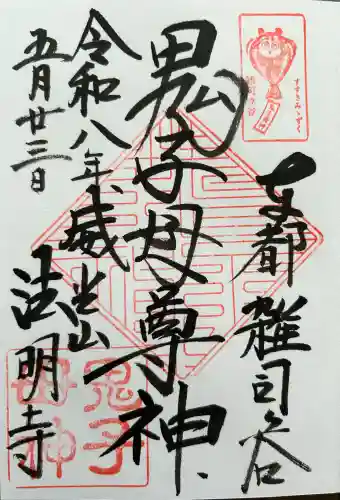 東都雑司谷
鬼子母尊神
威光山
法明寺
令和八年
五月廿三日
すすきみゝずく
鬼子
母神